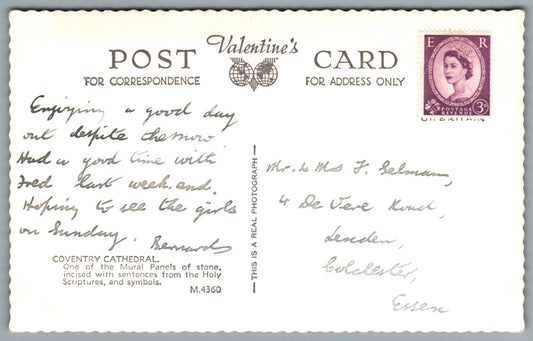 POST Valentine's CARD
FOR CORRESPONDENCE FOR ADDRESS ONLY
E R
POSTAGE REVENUE
3D
GT. BRITAIN
Enjoying a good day
out despite the snow
Had a good time with
Fred last week-end.
Hoping to see the girls
on Sunday. Bernard
COVENTRY CATHEDRAL.
One of the Mural Panels of stone,
incised with sentences from the Holy
Scriptures, and symbols.
M.4360
— THIS IS A REAL PHOTOGRAPH —
Mr. & Mrs F. Selman,
4 De Vere Road,
Lexden,
Colchester,
Essex